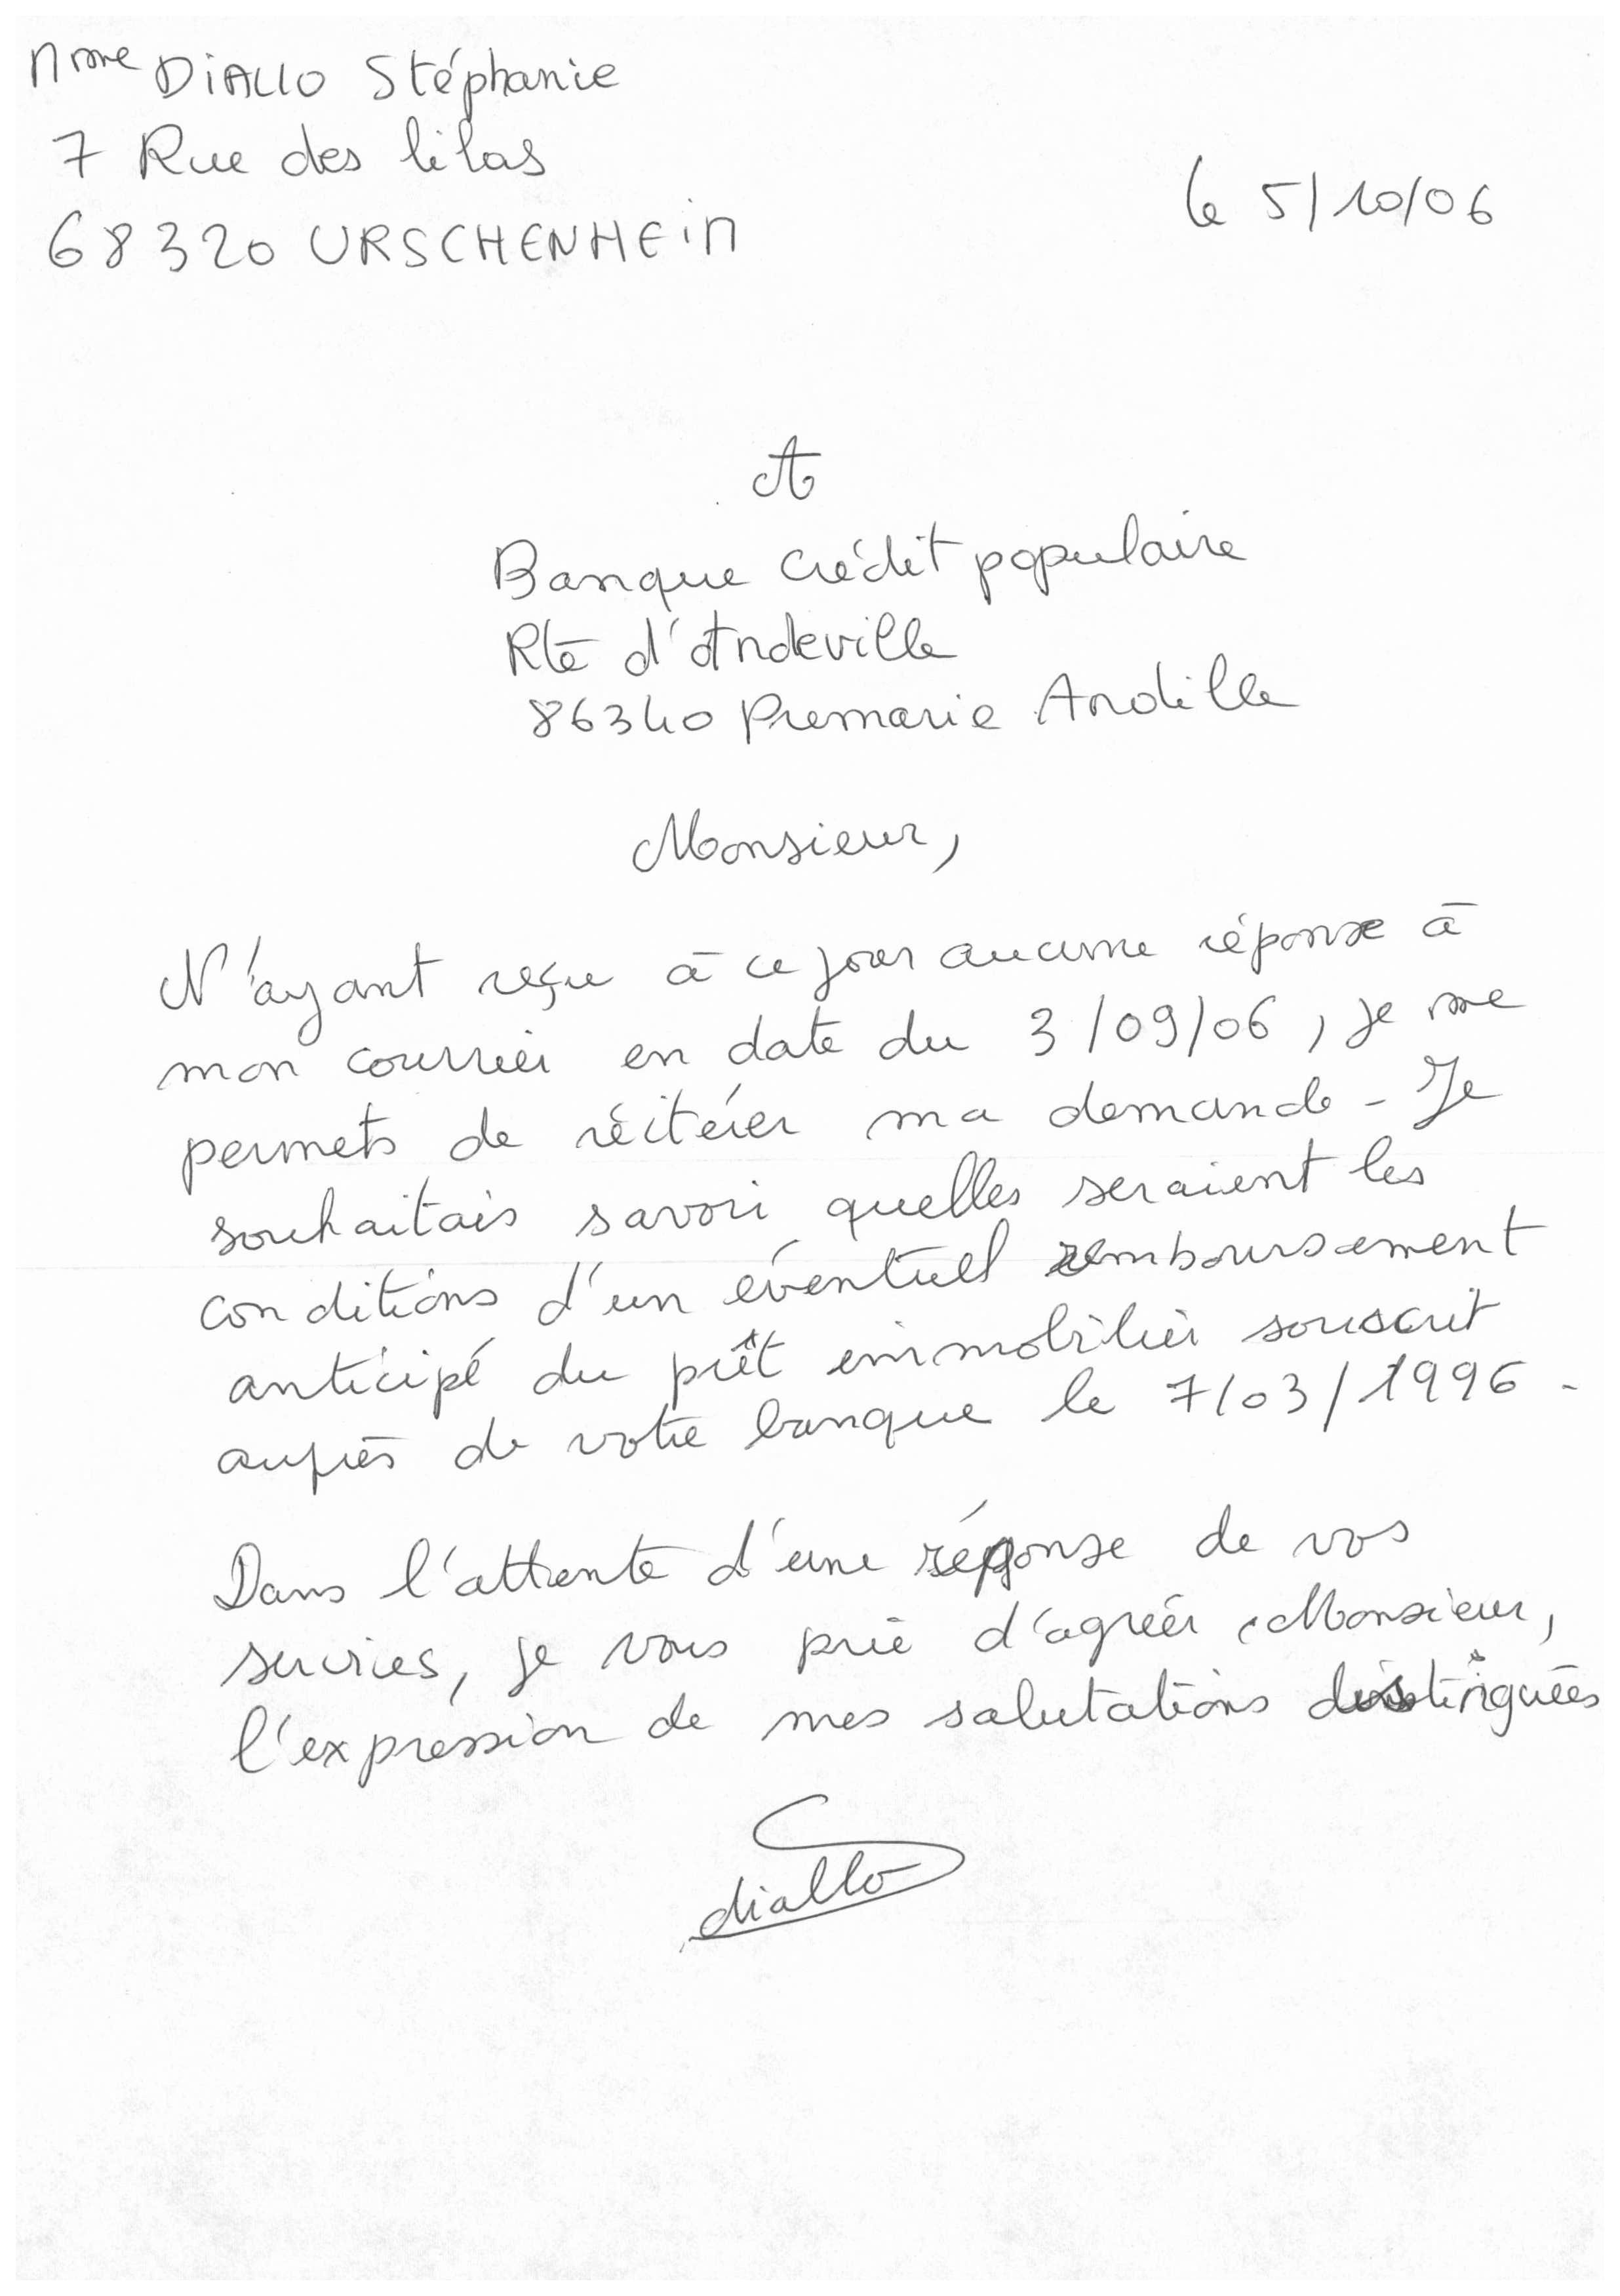 Mme DIALLO Stéphanie
7 Rue des lilas
68320 URSCHENHEIM
le 5/10/06
A
Banque Crédit populaire
Rte d'Andeville
86340 Premarie Andille
Monsieur,
N'ayant reçu à ce jour aucune réponse à
mon courrier en date du 3/09/06, je me
permets de réitérer ma demande. Je
souhaitais savoir quelles seraient les
conditions d'un éventuel remboursement
anticipé du prêt immobilier souscrit
auprès de votre banque le 7/03/1996.
Dans l'attente d'une réponse de vos
services, je vous prie d'agréer, Monsieur,
l'expression de mes salutations distinguées
diallo